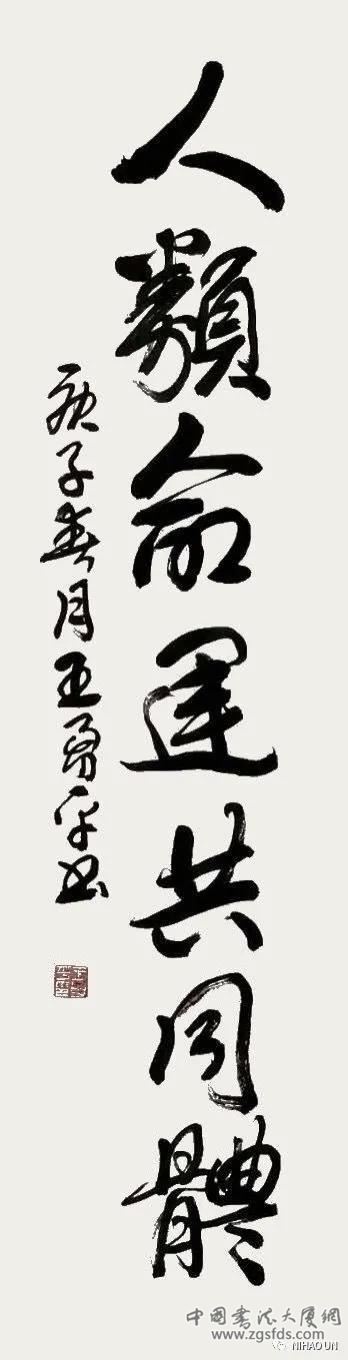 人類命運共同體
庚子春月王勇平书
中国书法大厦網
www.zgsfds.com
NIHAO UN